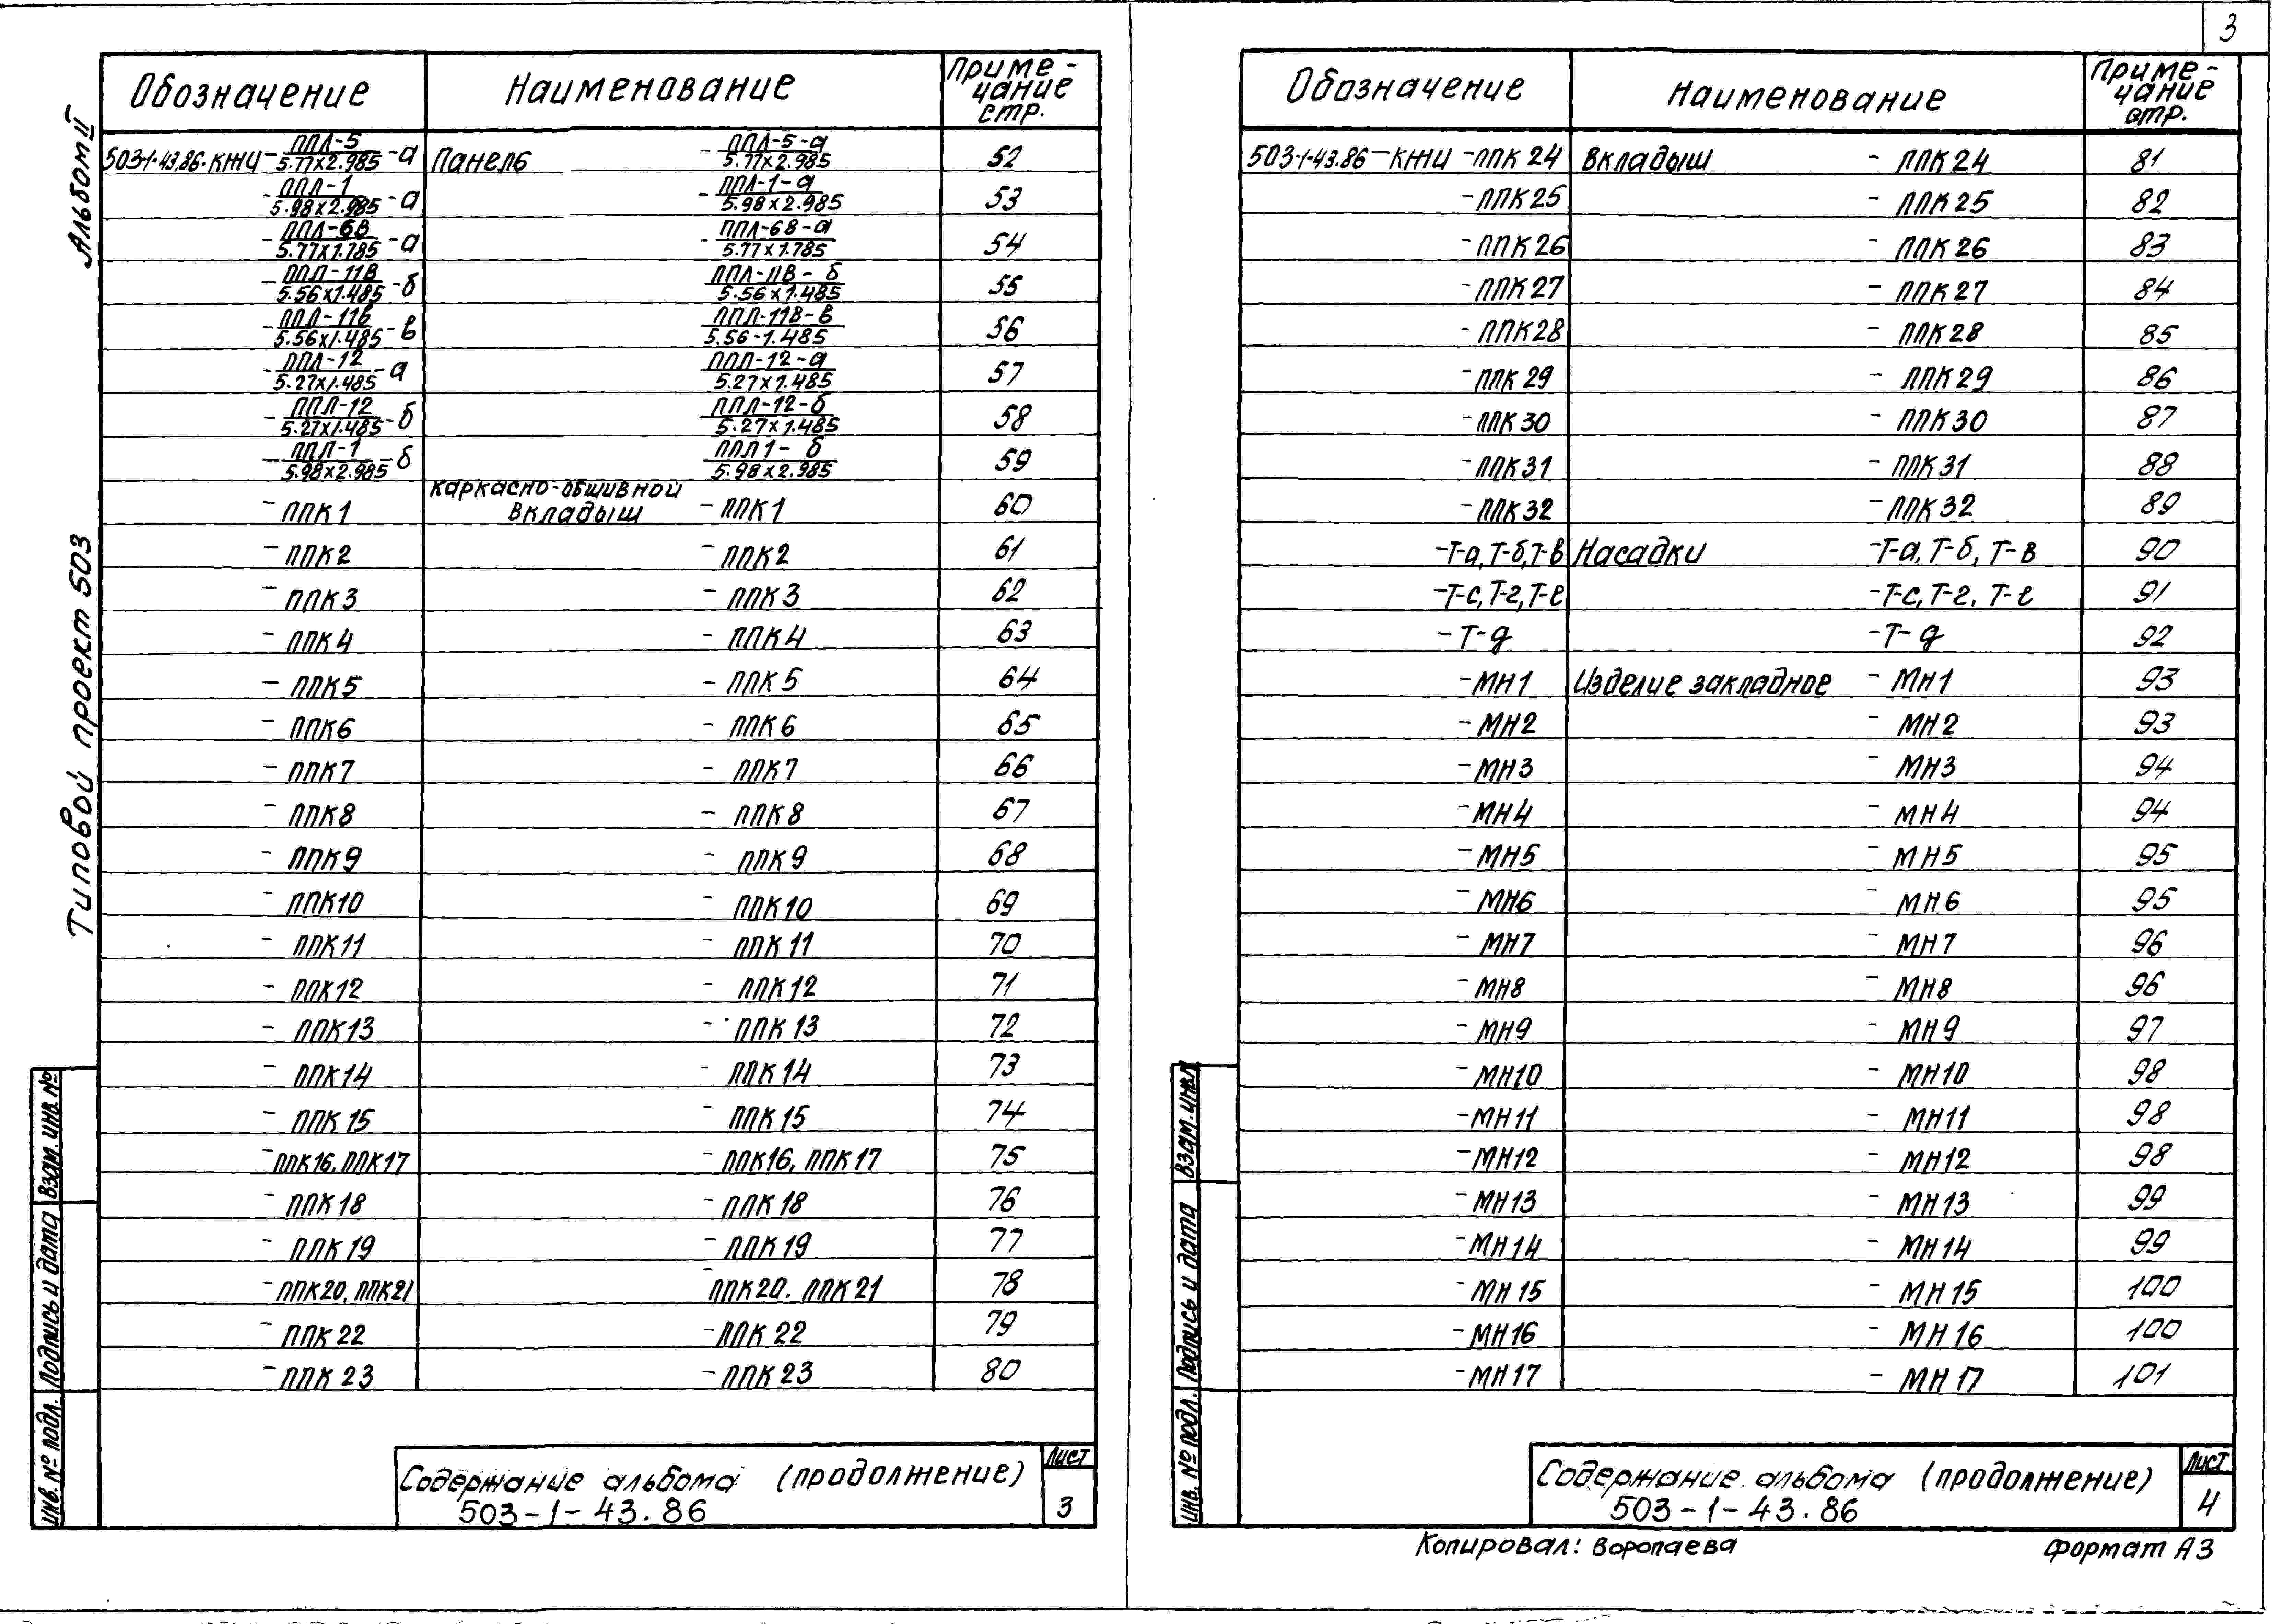 3
Альбом II
Типовой проект 503
Обозначение Наименование Приме-
чание
стр.
503-1-43.86-КЖИ - ППЛ-5/5.77x2.985 -а Панель - ППЛ-5-а/5.77x2.985 52
- ППЛ-1/5.98x2.985 -а - ППЛ-1-а/5.98x2.985 53
- ППЛ-6в/5.77x1.785 -а - ППЛ-6в-а/5.77x1.785 54
- ППЛ-11в/5.56x1.485 -б ППЛ-11в-б/5.56x1.485 55
- ППЛ-11в/5.56x1.485 -в ППЛ-11в-в/5.56-1.485 56
- ППЛ-12/5.27x1.485 -а ППЛ-12-а/5.27x1.485 57
- ППЛ-12/5.27x1.485 -б ППЛ-12-б/5.27x1.485 58
- ППЛ-1/5.98x2.985 -б ППЛ1-б/5.98x2.985 59
каркасно-обшивной
- ППК1 вкладыш - ППК1 60
- ППК2 - ППК2 61
- ППК3 - ППК3 62
- ППК4 - ППК4 63
- ППК5 - ППК5 64
- ППК6 - ППК6 65
- ППК7 - ППК7 66
- ППК8 - ППК8 67
- ППК9 - ППК9 68
- ППК10 - ППК10 69
- ППК11 - ППК11 70
- ППК12 - ППК12 71
- ППК13 - ППК13 72
- ППК14 - ППК14 73
- ППК15 - ППК15 74
- ППК16, ППК17 - ППК16, ППК17 75
- ППК18 - ППК18 76
- ППК19 - ППК19 77
- ППК20, ППК21 - ППК20. ППК21 78
- ППК22 - ППК22 79
- ППК23 - ППК23 80
Взам. инв. №
Подпись и дата
Инв. № подл.
Содержание альбома (продолжение)
503-1-43.86
Лист
3
Обозначение Наименование Приме-
чание
стр.
503-1-43.86-КЖИ -ППК24 Вкладыш - ППК24 81
- ППК25 - ППК25 82
- ППК26 - ППК26 83
- ППК27 - ППК27 84
- ППК28 - ППК28 85
- ППК29 - ППК29 86
- ППК30 - ППК30 87
- ППК31 - ППК31 88
- ППК32 - ППК32 89
-Т-а, Т-б, Т-в Насадки -Т-а, Т-б, Т-в 90
-Т-с, Т-г, Т-е -Т-с, Т-г. Т-е 91
- Т-д -Т-д 92
- МН1 Изделие закладное - МН1 93
- МН2 - МН2 93
- МН3 - МН3 94
- МН4 - МН4 94
- МН5 - МН5 95
- МН6 - МН6 95
- МН7 - МН7 96
- МН8 - МН8 96
- МН9 - МН9 97
- МН10 - МН10 98
- МН11 - МН11 98
- МН12 - МН12 98
- МН13 - МН13 99
- МН14 - МН14 99
- МН15 - МН15 100
- МН16 - МН16 100
- МН17 - МН17 101
Взам. инв.№
Подпись и дата
Инв. № подл.
Содержание альбома (продолжение)
503-1-43.86
Лист
4
Копировал: Воропаева Формат А3